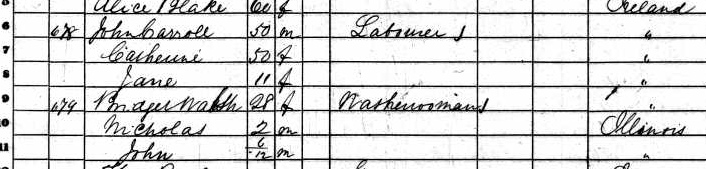 Alice Blake 60 f Ireland
6 678 John Carroll 50 m Labourer 1 "
7 Catherine 50 f "
8 Jane 11 f "
9 679 Bridget Walsh 28 f Washerwoman 1 "
10 Nicholas 2 m Illinois
11 John 6/12 m "